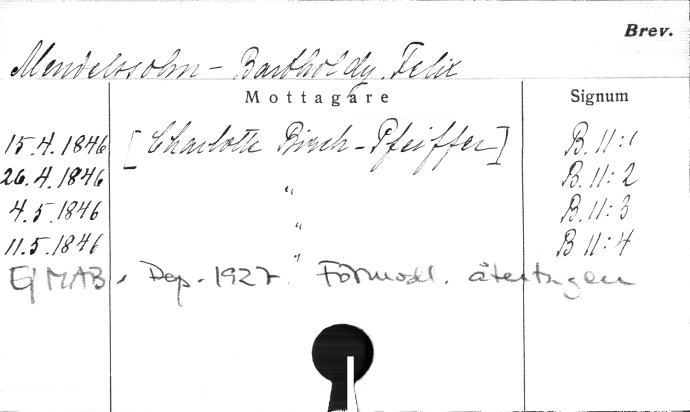 Brev.
Mendelssohn-Bartholdy, Felix
Mottagare Signum
15.4.1846 [Charlotte Birch-Pfeiffer] B. 11:1
26.4.1846 " B. 11:2
4.5.1846 " B. 11:3
11.5.1846 " B 11:4
Ej MAB, Dep. 1927. Förmodl. återtagen